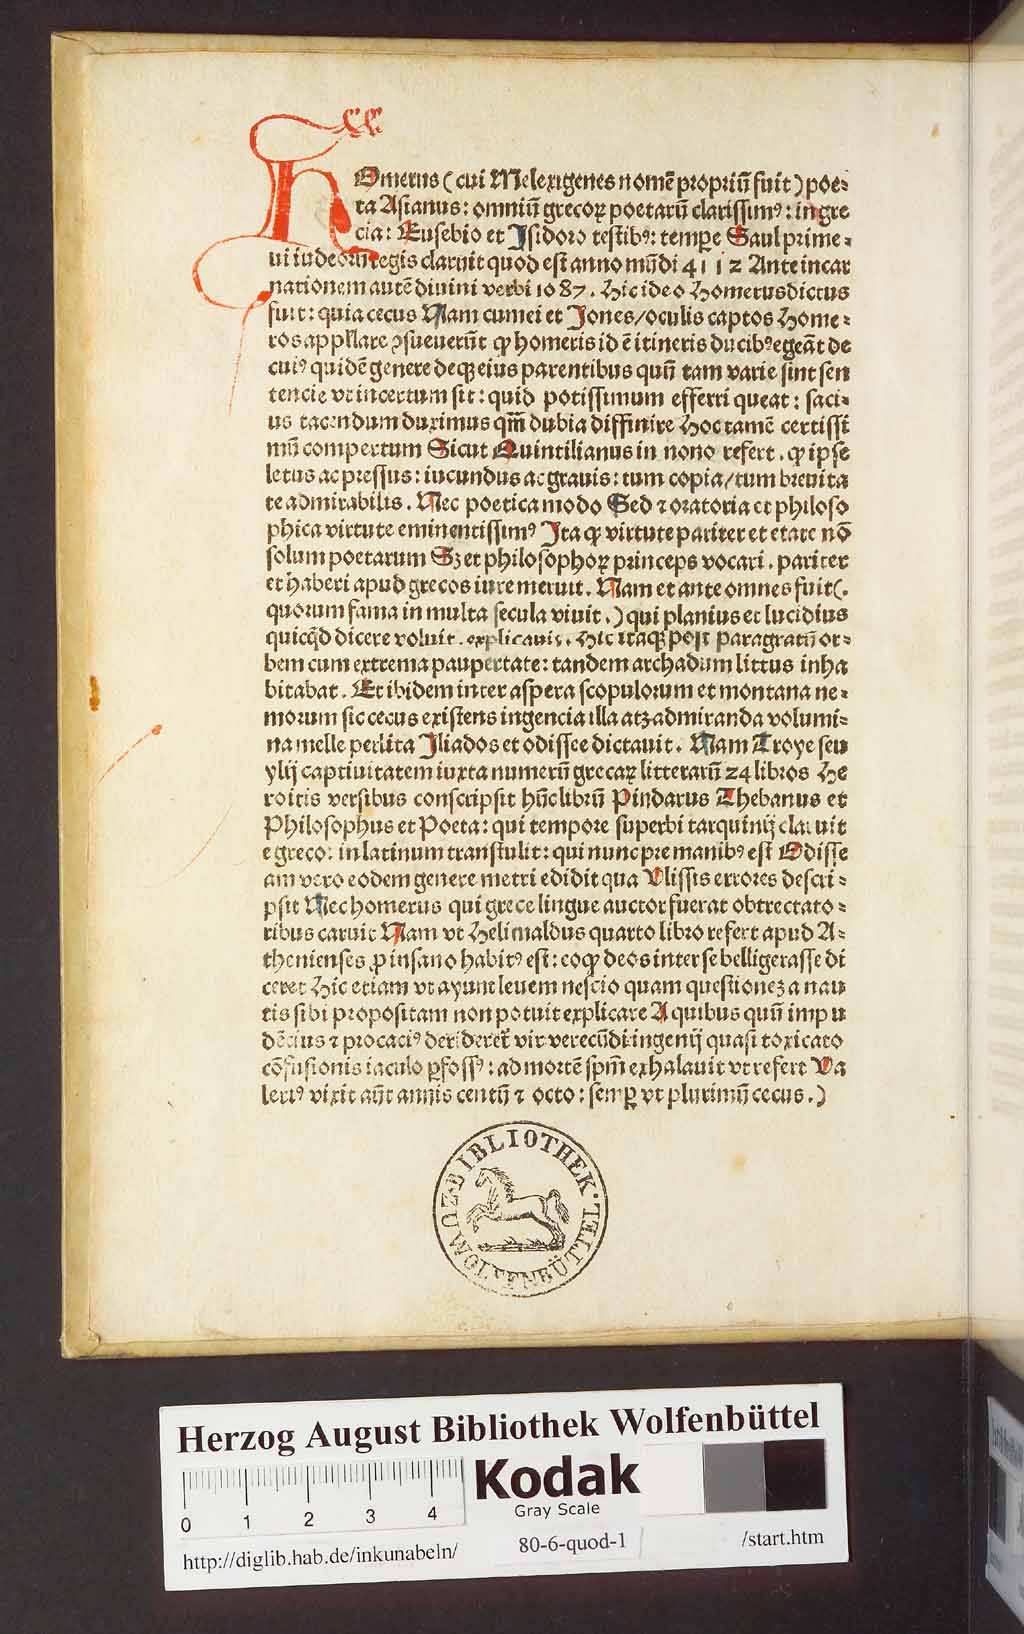 HOmerus ( cui Melexigenes nomē propriū fuit ) poe⸗
ta Asianus : omniū grecoꝝ poetarū clarissimꝰ : in gre
cia : Eusebio et Isidoro testibꝰ : tempe Saul prime⸗
ui iudeorū regis claruit quod est anno mūdi 4112 Ante incar
nationem autē diuini verbi 1087. Hic ideo Homerus dictus
fuit : quia cecus Nam cumei et Jones / oculis captos Home⸗
ros appllare ꝯsueuerūt qꝫ homeris id ē itineris ducibꝰ egeāt de
cuiꝰ quidē genere deqꝫ eius parentibus quū tam varie sint sen
tencie vt incertum sit : quid potissimum efferri queat : saci⸗
us tacendum duximus qm̄ dubia diffinire Hoc tamē certissī
mū compertum Sicut Quintilianus in nono refert . qꝫ ipse
letus ac pressus : iucundus ac grauis : tum copia / tum breuita
te admirabilis . Nec poetica modo Sed ⁊ oratoria et philoso
phica virtute eminentissimꝰ Ita qꝫ virtute pariter et etate nō
solum poetarum Sꝫ et philosophoꝝ princeps vocari . pariter
et haberi apud grecos iure meruit . Nam et ante omnes fuit (.
quorum fama in multa secula viuit .) qui planius et lucidius
quicqd dicere voluit . explicauit . Hic itaqꝫ post paragratū or⸗
bem cum extrema paupertate : tandem archadum littus inha
bitabat . Et ibidem inter aspera scopulorum et montana ne⸗
morum sic cecus existens ingencia illa atqꝫ admiranda volumi⸗
na melle perlita Iliados et odissee dictauit . Nam Troye seu
ylij captiuitatem iuxta numerū grecaꝝ litterarū 24 libros He
roicis versibus conscripsit hūc librū Pindarus Thebanus et
Philosophus et Poeta : qui tempore superbi tarquinij claruit
e greco : in latinum transtulit : qui nunc pre manibꝰ est Odisse
am vero eodem genere metri edidit qua Vlissis errores descri⸗
psit Nec homerus qui grece lingue auctor fuerat obtrectato⸗
ribus caruit Nam vt Helimaldus quarto libro refert apud A⸗
thenienses ꝓ insano habitꝰ est : eo qꝫ deos inter se belligerasse di
ceret Hic etiam vt ayunt leuem nescio quam questionez a nau
tis sibi propositam non potuit explicare A quibus quū impu
dēcius ⁊ procaciꝰ derideret̄ vir verecūdi ingenij quasi toxicato
cōfusionis iaculo ꝑfossꝰ : ad mortē spm̄ exhalauit vt refert Va
leriꝰ vixit aūt annis centū ⁊ octo : semꝑ vt plurimū cecus .)
BIBLIOTHEK · ZU WOLFENBÜTTEL ·
Herzog August Bibliothek Wolfenbüttel
Kodak
Gray Scale
0 1 2 3 4
http://diglib.hab.de/inkunabeln/ 80-6-quod-1 /start.htm